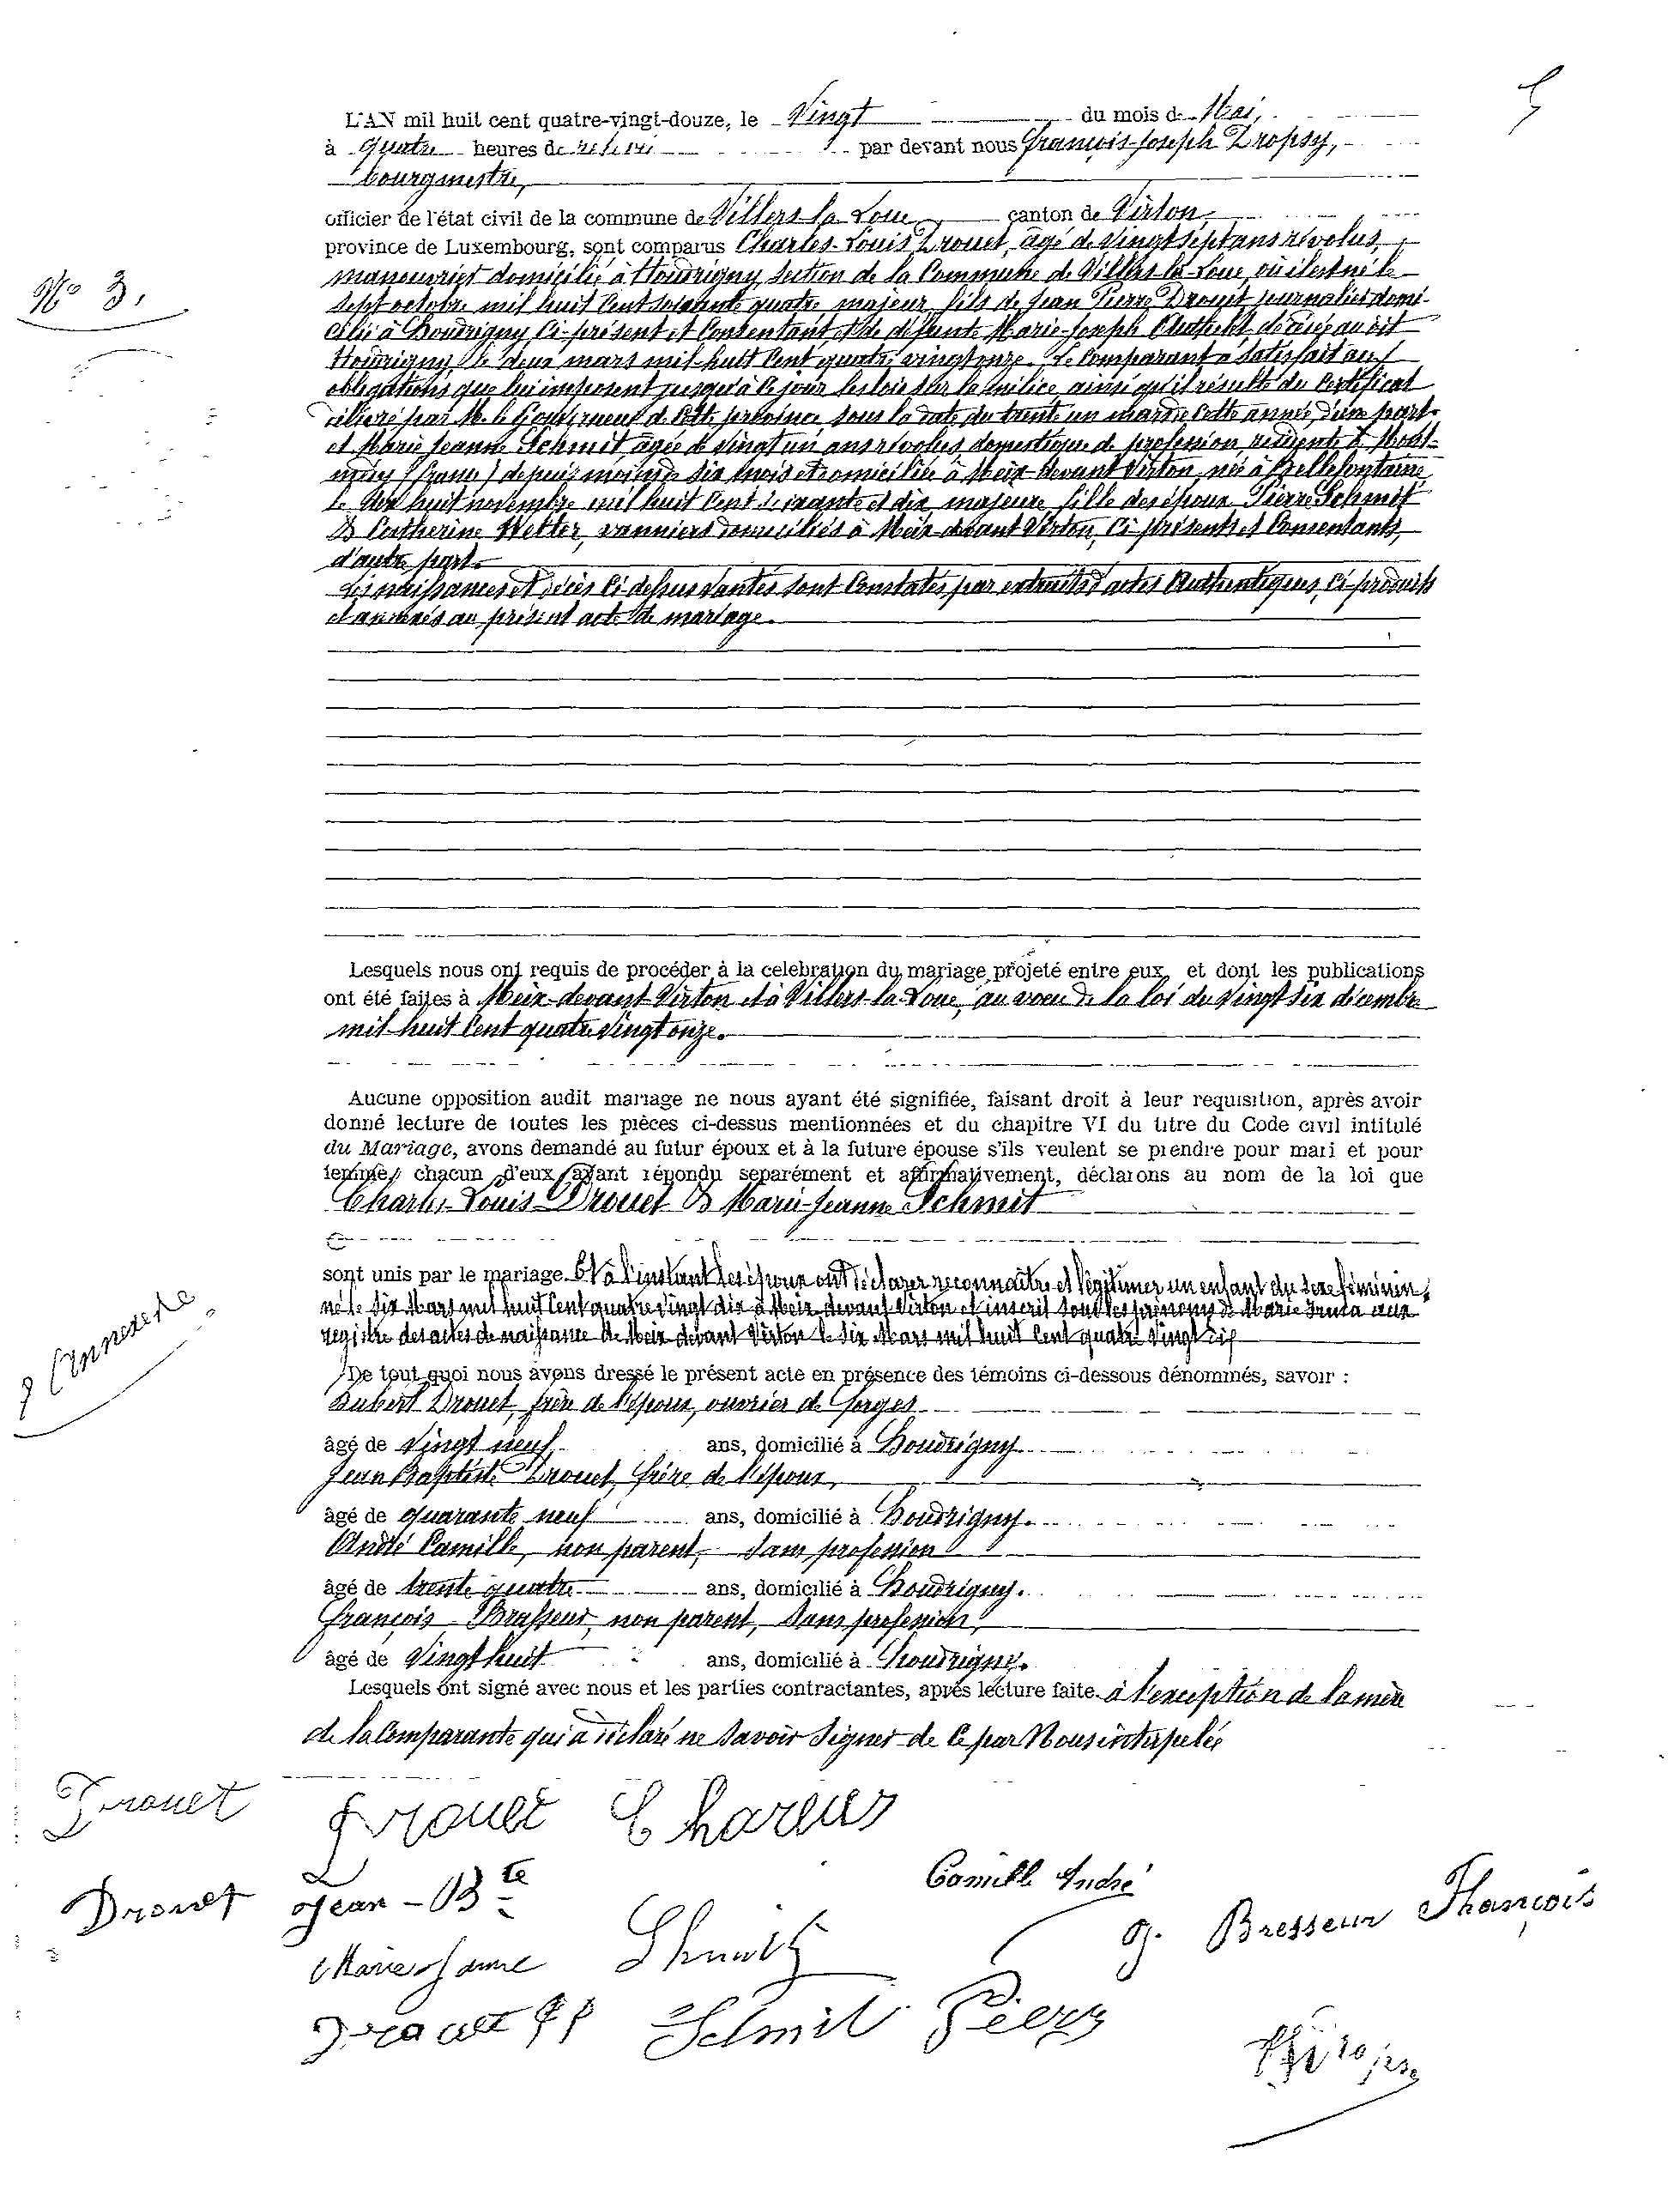 5
L'AN mil huit cent quatre-vingt-douze, le Vingt du mois de Mai,
à quatre heures de relevée par devant nous François-Joseph Dropsy,
bourgmestre,
officier de l'état civil de la commune de Villers-la-Loue canton de Virton,
province de Luxembourg, sont comparus Charles-Louis Drouet, âgé de vingt sept ans révolus,
manouvrier domicilié à Houdrigny, section de la Commune de Villers-la-Loue, où il est né le
N° 3.
sept octobre mil huit cent soixante quatre, majeur, fils de Jean Pierre Drouet journalier domi-
cilié à Houdrigny, ci-présent et consentant et de défunte Marie-Joseph décédée au dit
Houdrigny, le deux mars mil-huit cent quatre vingt onze. Le comparant a satisfait aux
obligations que lui imposent jusqu'à ce jour les lois sur la milice ainsi qu'il résulte du certificat
délivré par M. le Gouverneur de cette province sous la date du trente un mars de cette année, d'une part.
et Marie Jeanne Schmit, âgée de vingt un ans révolus, domestique de profession, résidente à Mont-
médy (France) depuis moins de six mois et domiciliée à Meix-devant-Virton, née à Bellefontaine
le dix huit novembre mil huit cent soixante et dix, majeure, fille des époux Pierre Schmit
& Catherine Wetter, vanniers domiciliés à Meix-devant-Virton, ci-présents et consentants,
d'autre part.
Les naissances et décès ci-dessus vantés sont constatés par extraits d'actes authentiques, ci-produits
et annexés au présent acte de mariage.
Lesquels nous ont requis de procéder à la celebration du mariage projeté entre eux, et dont les publications
ont été faites à Meix-devant-Virton et à Villers-la-Loue, au vœu de la loi du vingt six décembre
mil huit cent quatre vingt onze.
Aucune opposition audit mariage ne nous ayant été signifiée, faisant droit à leur requisition, après avoir
donné lecture de toutes les pièces ci-dessus mentionnées et du chapitre VI du titre du Code civil intitulé
du Mariage, avons demandé au futur époux et à la future épouse s'ils veulent se prendre pour mari et pour
femme; chacun d'eux ayant répondu separément et affirmativement, déclarons au nom de la loi que
Charles-Louis Drouet & Marie-Jeanne Schmit
sont unis par le mariage. Et à l'instant les époux ont déclarer reconnaître et légitimer un enfant du sexe féminin,
né le six Mars mil huit cent quatre vingt dix à Meix devant Virton et inscrit sous les prénoms de Marie aux
registre des actes de naissance de Meix devant Virton le six Mars mil huit cent quatre vingt dix
7 Annexes
De tout quoi nous avons dressé le présent acte en présence des témoins ci-dessous dénommés, savoir :
Hubert Drouet, frère de l'époux, ouvrier de forges
âgé de vingt neuf ans, domicilié à Houdrigny.
Jean Baptiste Drouet, frère de l'époux,
âgé de quarante neuf ans, domicilié à Houdrigny.
André Camille, non parent, sans profession
âgé de trente quatre ans, domicilié à Houdrigny.
François Brasseur, non parent, sans profession,
âgé de vingt huit ans, domicilié à Houdrigny.
Lesquels ont signé avec nous et les parties contractantes, après lecture faite. à l'exception de la mère
de la Comparante qui a déclaré ne savoir signer de ce par Nous interpelée
Drouet Drouet Charles
Drouet Jean-Bte Camille André
Marie Jeanne Shmit J. Bresseur François
Drouet JP Schmit Pierre